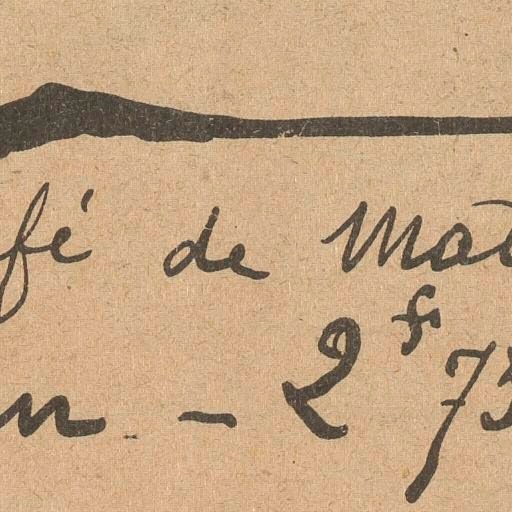 fé de Mat
n - 2 fr 75